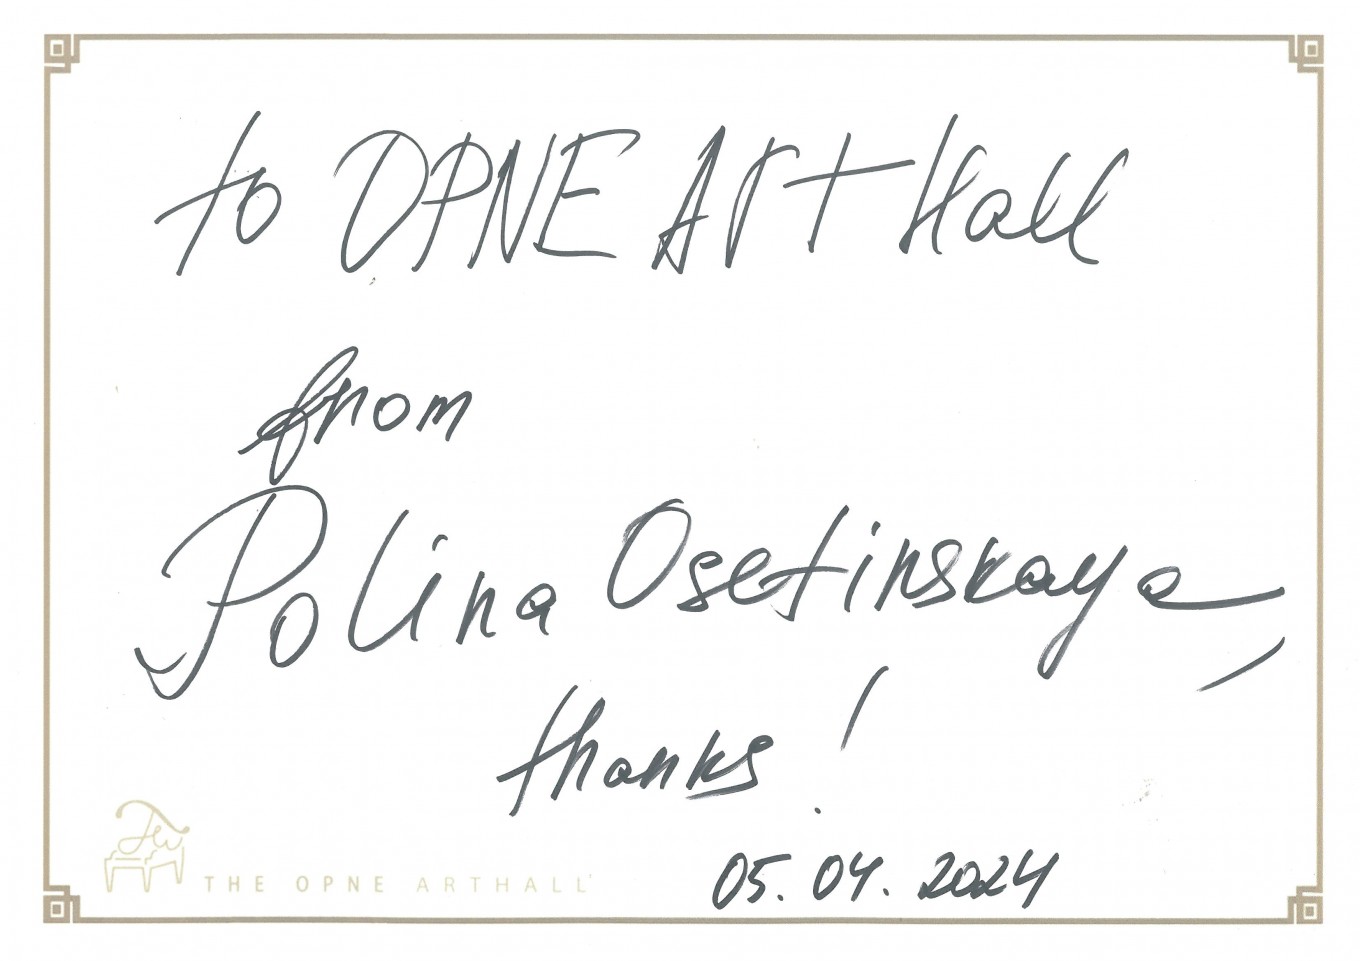 to OPNE Art Hall
from
Polina Osetinskaya,
thanks!
05.04.2024
THE OPNE ARTHALL